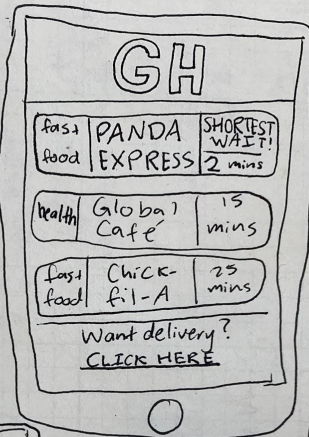 GH
fast food
PANDA EXPRESS
SHORTEST WAIT!
2 mins
health
Global Café
15 mins
fast food
Chick-fil-A
25 mins
Want delivery?
CLICK HERE